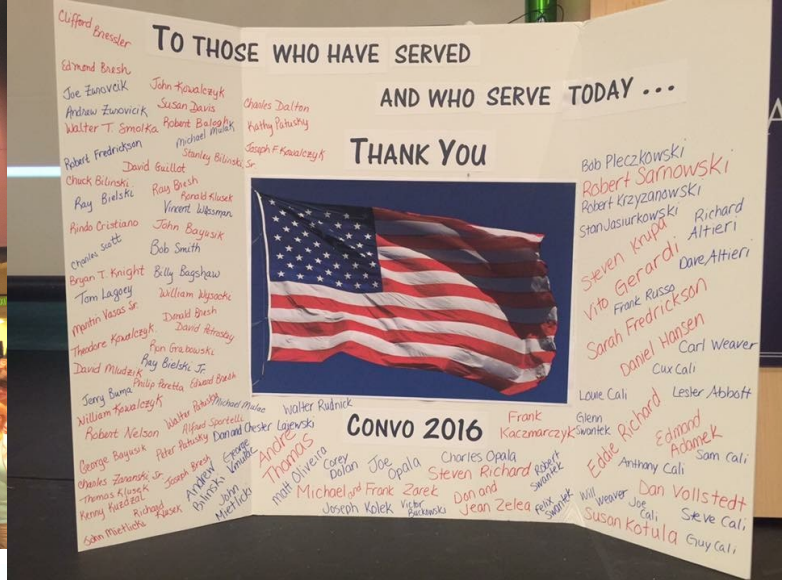 TO THOSE WHO HAVE SERVED
AND WHO SERVE TODAY ...
THANK YOU
Clifford Bressler
Edmond Bresh
Joe Zunovcik
John Kowalczyk
Andrew Zunovicik
Susan Davis
Walter T. Smolka
Robert Balogh
Michael Mulak
Robert Fredrickson
Stanley Bilinski Sr.
David Guillot
Chuck Bilinski
Ray Bresh
Ray Bielski
Ronald Klusek
Vincent Wlasman
Rindo Cristiano
John Bayusik
Charles Scott
Bob Smith
Bryan T. Knight
Billy Bagshaw
Tom Lagoey
William Wysocki
Martin Vasas Sr.
Donald Bresh
David Petrosky
Theodore Kowalczyk
Ron Grabowski
David Mludzik
Ray Bielski Jr.
Philip Peretta
Edward Bresh
Jerry Buma
William Kowalczyk
Walter Patusky
Michael Mulee
Robert Nelson
Alfred Sportelli
Dan and Chester Lajewski
George Bayusik
Peter Patusky
George
Charles Zananski Sr.
Joseph Bresh
Thomas Klusek
Andrew Bilinski
Kenny Kuzdzal
Richard Klusek
John Mietlicki
John Mietlicki
Charles Dalton
Kathy Patusky
Joseph F. Kowalczyk
Walter Rudnick
CONVO 2016
Frank Kaczmarczyk
Andre Thomas
Matt Oliveira
Corey Dolan
Joe Opala
Charles Opala
Steven Richard
Robert Swantek
Michael and Frank Zarek
Don and Jean Zelea
Felix Swantek
Joseph Kolek
Victor Buckowski
Bob Pleczkowski
Robert Sarnowski
Robert Krzyzanowski
Stan Jasiurkowski
Richard Altieri
Steven Krupa
Vito Gerardi
Dave Altieri
Frank Russo
Sarah Fredrickson
Daniel Hansen
Carl Weaver
Cux Cali
Louie Cali
Lester Abbott
Glenn Swantek
Eddie Richard
Edmond Adamek
Sam Cali
Anthony Cali
Will Weaver
Joe Cali
Dan Vollstedt
Steve Cali
Susan Kotula
Guy Cali